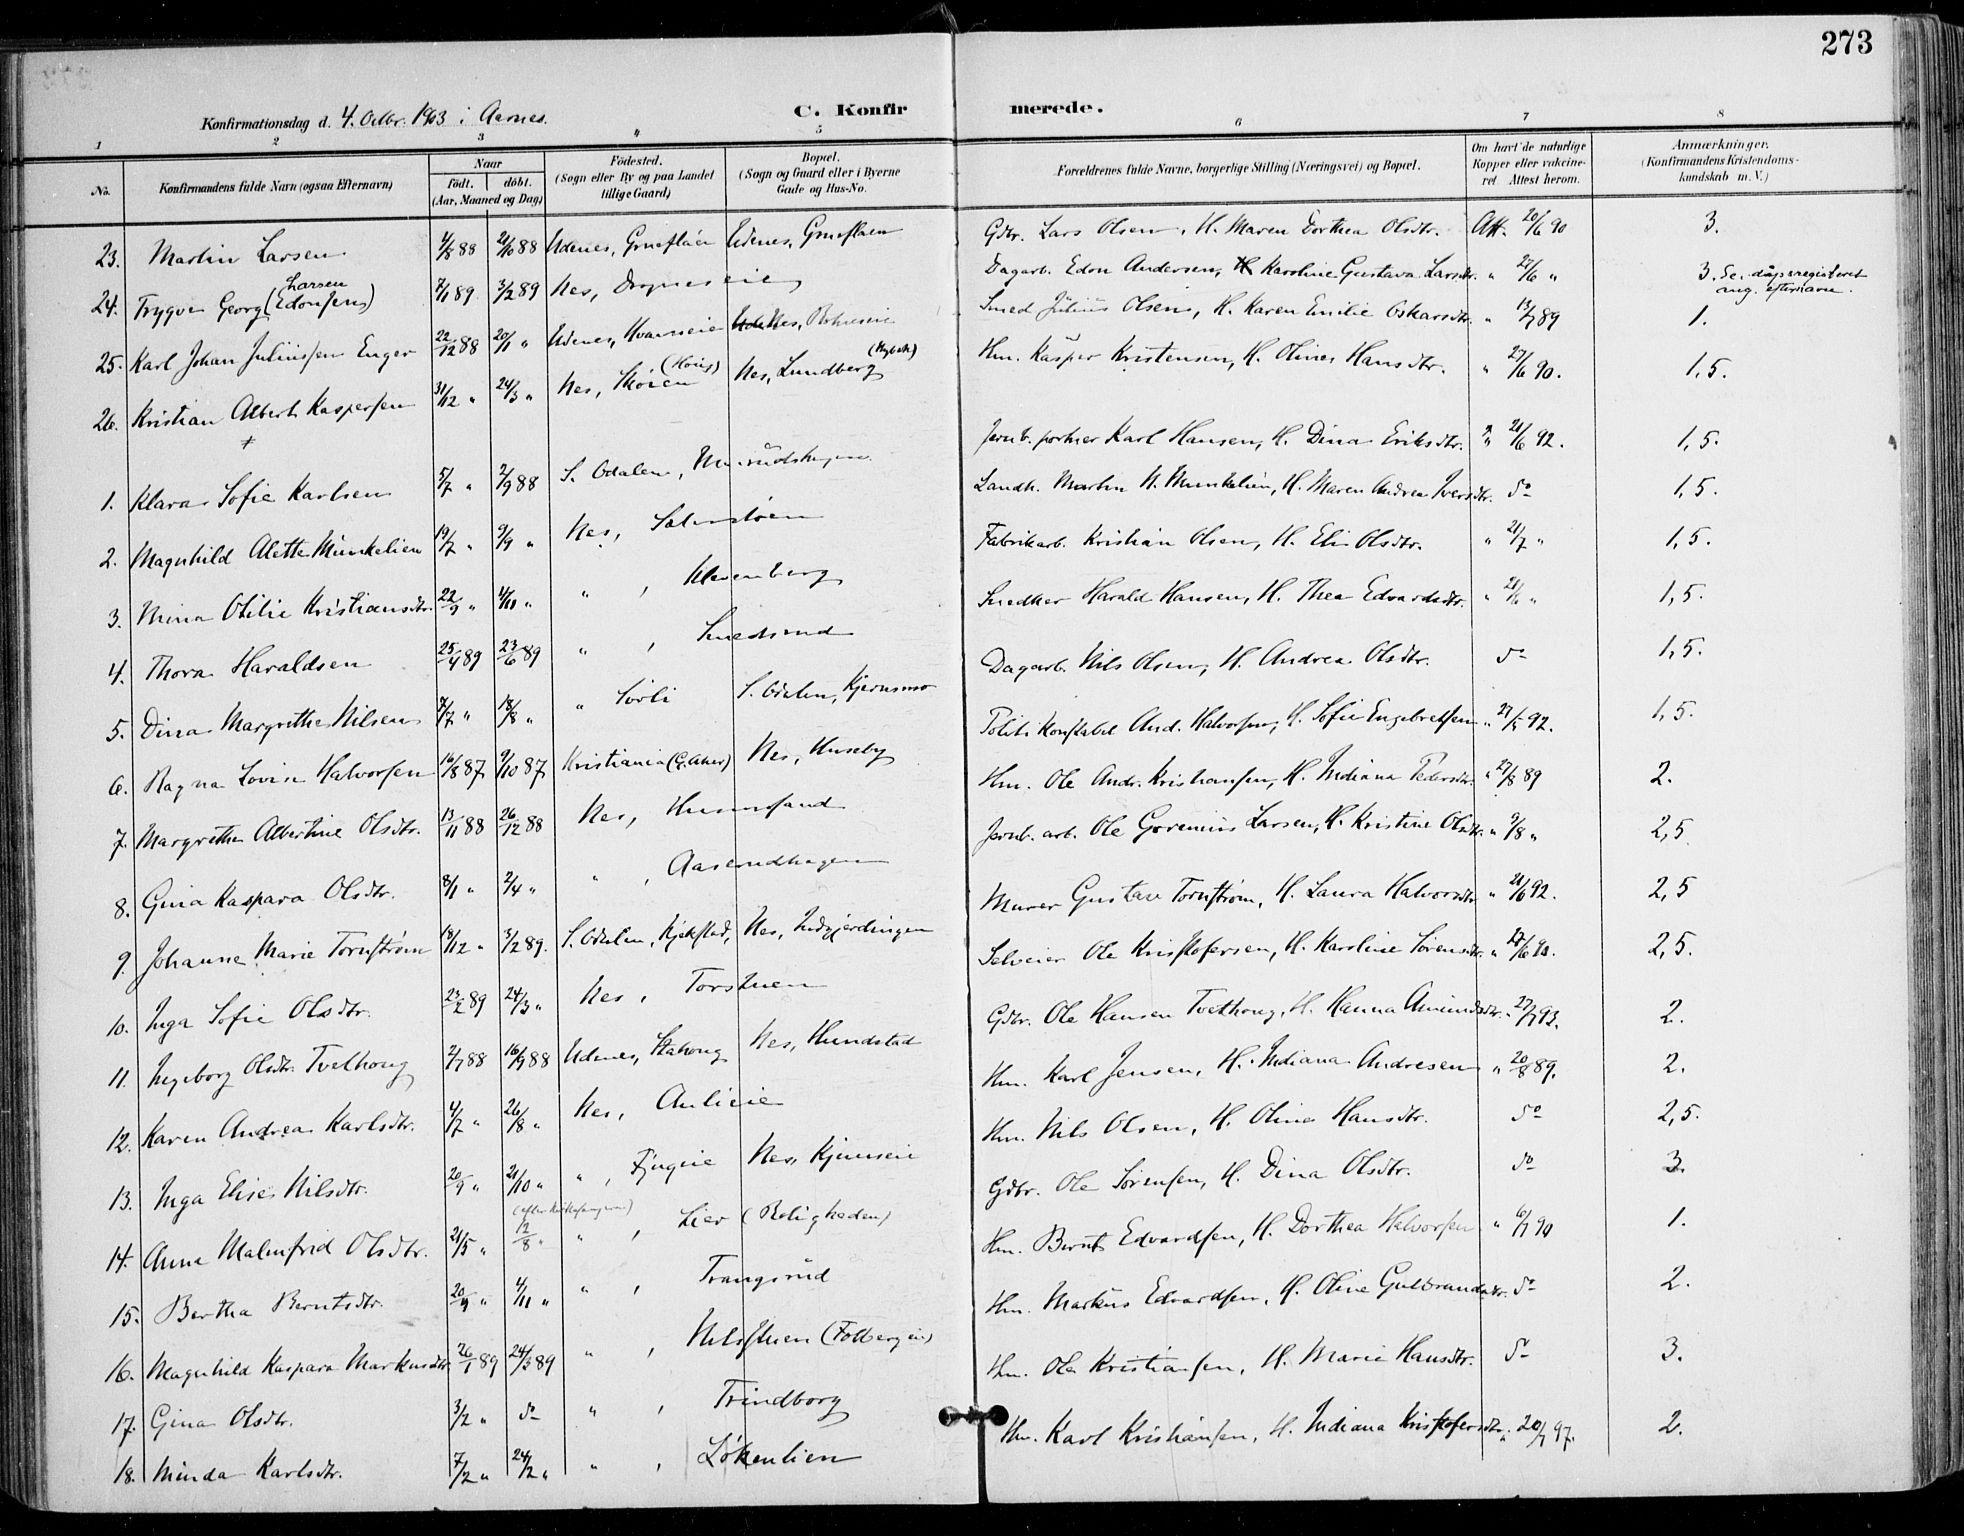 273
Konfirmationsdag d. 4. Octbr. 1903 i Aarnes.
C. Konfirmerede.
1 2 3 4 5 6 7 8
No. Konfirmandens fulde Navn (ogsaa Efternavn) Naar født. døbt. (Aar, Maaned og Dag) Födested. (Sogn eller By og paa Landet tillige Gaard) Bopæl. (Sogn og Gaard eller i Byerne Gade og Hus-No. Forældrenes fulde Navne, borgerlige Stilling (Næringsvei) og Bopæl. Om havt de naturlige Kopper eller vakcineret. Attest herom. Anmærkninger. (Konfirmandens Kristendomskundskab m. V.)
23. Martin Larsen 4/8 88 21/10 88 Udenes, Grueflaen Udenes, Grueflaen Gdbr. Lars Olsen, H. Maren Dorthea Olsdtr. Att. 20/6 90 3.
24. Trygve Georg (Edonsen) Larsen 7/1 89 3/2 89 Nes, Dagarb. Edon Andersen, H. Karoline Gustava Larsdtr. " 27/6 " 3. Se dåpsregisteret ang. efternavn.
25. Karl Johan Juliussen Enger 22/12 88 20/1 " Udenes, Nes, Smed Julius Olsen, H. Karen Emilie Oskarsdtr. " 13/7 89 1.
26. Kristian Albert Kaspersen 31/12 " 24/3 " Nes, Nes, Lundberg Hm. Kasper Kristensen, H. Oline Hansdtr. " 27/6 90. 1,5.
1. Klara Sofie Karlsen 5/7 " 2/9 88 S. Odalen, Jernb. portner Karl Hansen, H. Dina Eriksdtr. " 21/6 92. 1,5.
2. Magnhild Alette Munkelien 19/7 " 9/9 " Nes, Landh. Martin N. Munkelien, H. Maren Andrea Iversdtr. do 1,5.
3. Mina Otilie Kristiansdtr. 22/9 " 4/11 " " , Klevenberg Fabrikarb. Kristian Olsen, H. Eli Olsdtr. " 21/7 " 1,5.
4. Thora Haraldsen 25/4 89 23/6 89 " , Smedsrud Snedker Harald Hansen, H. Thea Edvardsdtr. " 21/6 " 1,5.
5. Dina Margrethe Nilsen 7/7 " 18/8 " " Sørli S. Odalen, Kjernsmo Dagarb. Nils Olsen, H. Andrea Olsdtr. do 1,5.
6. Ragna Lovise Halvorsen 16/8 87 9/10 87 Kristiania (G. Aker) Nes, Huseby Politikonstabel And. Halvorsen, H. Sofie Engebretsen " 92. 1,5.
7. Margrethe Albertine Olsdtr. 13/11 88 26/12 88 Nes, Hm. Ole Andr. Kristiansen, H. Indiana Pedersdtr. " 27/8 89 2.
8. Gina Kaspara Olsdtr. 8/1 " 2/4 " " , Aaserudhagen Jernb. arb. Ole Larsen, H. Kristine Olsdtr. " 9/8 " 2,5
9. Johanne Marie Tornstrøm 18/12 " 3/2 89. S. Odalen, Kjekstad, Nes, Murer Gustav Tornstrøm, H. Laura Halvorsdtr. " 21/6 92. 2,5
10. Inga Sofie Olsdtr. 23/2 89 24/3 " Nes, Torstuen Selveier Ole Kristofersen, H. Karoline Sørensdtr. " 2,5.
11. Ingeborg Olsdtr. Tvethoug 2/7 88 16/9 88 Udenes, Nes, Hundstad Gdbr. Ole Hansen Tvethoug, H. Hanna Amundsdtr. " 27/7 93. 2.
12. Karen Andrea Karlsdtr. 4/7 " 26/8 " Nes, Aulieie Hm. Karl Jensen, H. Indiana Andresen " 20/8 89. 2.
13. Inga Elise Nilsdtr. 20/9 " 21/10 " " , Nes, Hm. Nils Olsen, H. Oline Hansdtr. do 2,5.
14. Anna Malmfrid Olsdtr. 21/5 " 12/8 " " , Lier (Beligheden) Gdbr. Ole Sørensen, H. Dina Olsdtr. do 3.
15. Bertha Berntsdtr. 20/9 " 4/11 " " , Trangsrud Hm. Bernt Edvardsen, H. Dorthea Halvorsen " 6/7 90 1.
16. Magnhild Kaspara Markusdtr. 26/1 89 24/3 89 " , Nilsstuen Hm. Markus Edvardsen, H. Oline Gulbrandsdtr. do 2.
17. Gina Olsdtr. 3/2 " do " , Trindborg Hm. Ole Kristiansen, H. Marie Hansdtr. do 3.
18. Minda Karlsdtr. 7/2 " 24/2 " " , Løkenlien Hm. Karl Kristiansen, H. Indiana Kristofersdtr. " 20/7 97. 2.